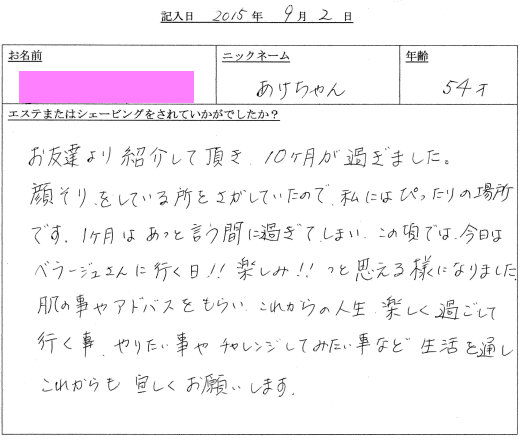 記入日 2015年 9月 2日
お名前
ニックネーム
年齢
あけちゃん
54才
エステまたはシェービングをされていかがでしたか？
お友達より紹介して頂き、10ヶ月が過ぎました。
顔そりをしている所をさがしていたので、私にはぴったりの場所
です。1ヶ月はあっと言う間に過ぎてしまい、この頃では、今日は
ベラージュさんに行く日!! 楽しみ!! っと思える様になりました
肌の事やアドバスをもらい、これからの人生、楽しく過ごして
行く事、やりたい事や チャレンジしてみたい事など 生活を通し
これからも 宜しくお願いします。